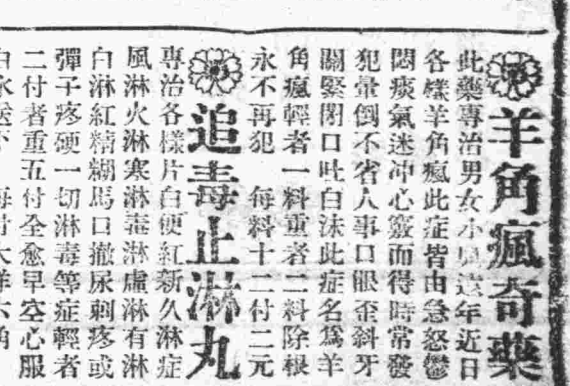 羊角瘋奇藥
此藥專治男女小兒遠年近日
各樣羊角瘋此症皆由急怒鬱
悶痰氣迷冲心竅而得時常發
犯暈倒不省人事口眼歪斜牙
關緊閉口吐白沫此症名爲羊
角瘋輕者一料重者二料除根
永不再犯 每料十二付二元
追毒止淋丸
專治各樣片白便紅新久淋症
風淋火淋寒淋毒淋虛淋有淋
白淋紅精糊馬口撤尿刺疼或
彈子疼硬一切淋毒等症輕者
二付者重五付全愈早空心服